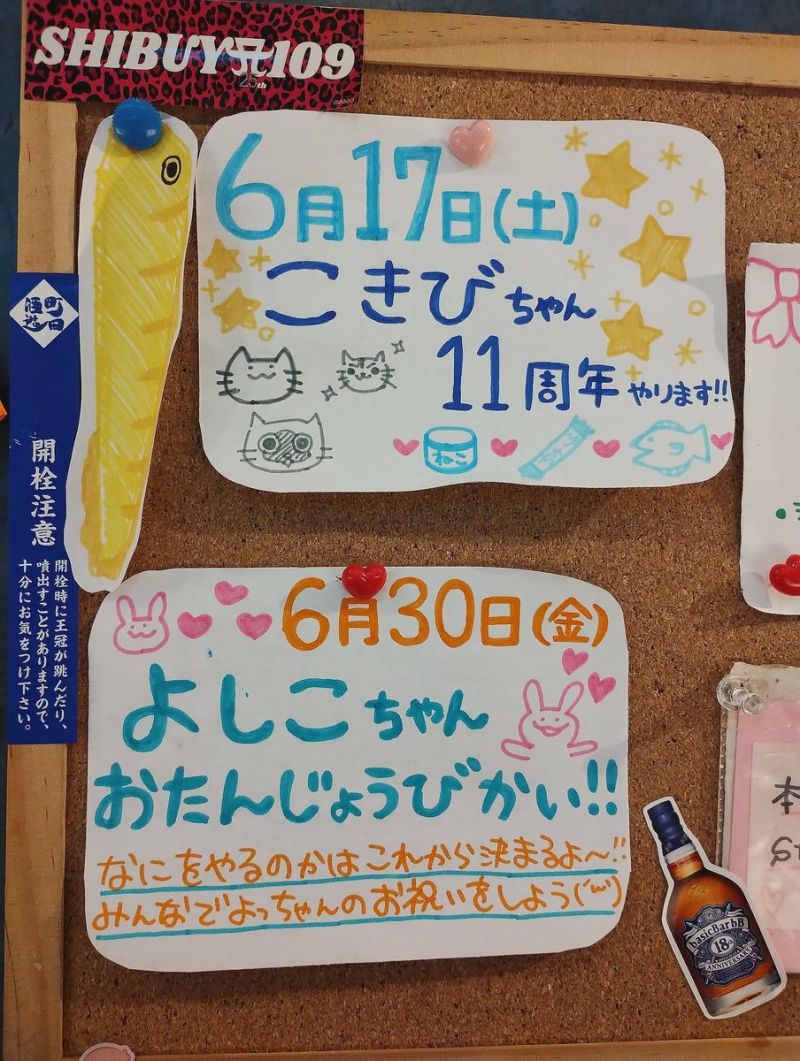 SHIBUY兄109
25th
6月17日(土)
こきびちゃん
11周年やります!!
ねこ
町田
酒造
開栓注意
開栓時に王冠が跳んだり、
噴出すことがありますので、
十分にお気をつけ下さい。
6月30日(金)
よしこちゃん
おたんじょうびかい!!
なにをやるのかはこれから決まるよ〜!!
みんなでよっちゃんのお祝いをしよう('ω')
本
St
basicBar bB
18
ANNIVERSARY